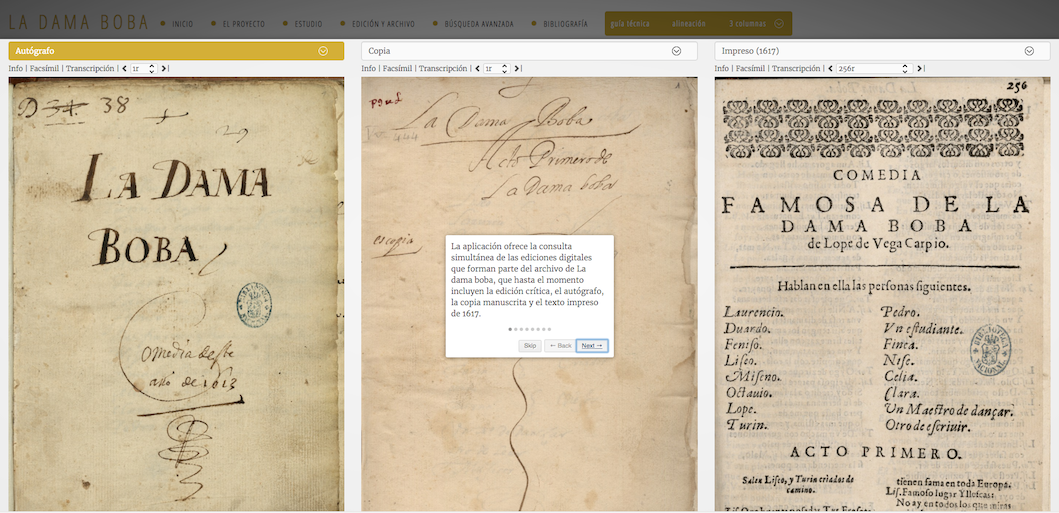 LA DAMA BOBA
INICIO
EL PROYECTO
ESTUDIO
EDICIÓN Y ARCHIVO
BÚSQUEDA AVANZADA
BIBLIOGRAFÍA
guía técnica
alineación
3 columnas
Autógrafo
Info | Facsímil | Transcripción | 1r
D 34. 38
29
LA DAMA
BOBA
Comedia deste
año de 1613
Copia
Info | Facsímil | Transcripción | 1r
La Dama Boba
Acto Primero de
La Dama boba
es copia
La aplicación ofrece la consulta
simultánea de las ediciones digitales
que forman parte del archivo de La
dama boba, que hasta el momento
incluyen la edición crítica, el autógrafo,
la copia manuscrita y el texto impreso
de 1617.
Skip
← Back
Next →
Impreso (1617)
Info | Facsímil | Transcripción | 256r
256
COMEDIA
FAMOSA DE LA
DAMA BOBA
de Lope de Vega Carpio.
Hablan en ella las personas siguientes.
Laurencio.
Duardo.
Feniso.
Liseo.
Miseno.
Octauio.
Lope.
Turin.
Pedro.
Vn estudiante.
Finea.
Nise.
Celia.
Clara.
Vn Maestro de dançar.
Otro de escriuir.
BIBLIOTECA
NACIONAL
ACTO PRIMERO.
Salen Liseo, y Turin criados de
camino.
tienen fama en toda Europa.
Lis. Famoso lugar Yllescas:
No ay en todos los que miras